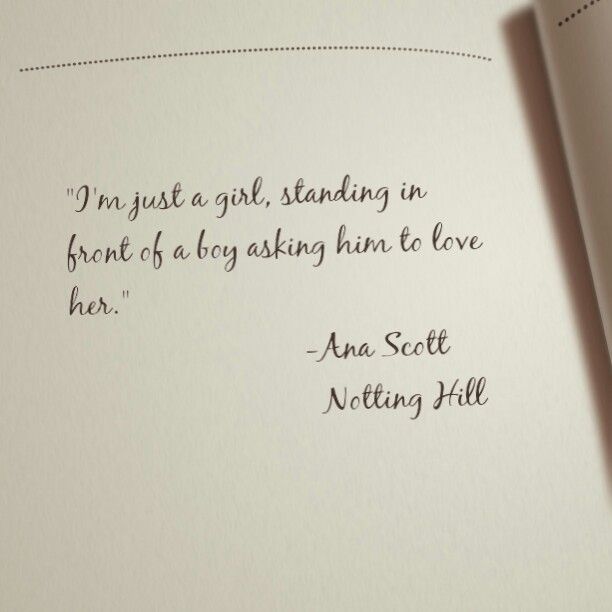 "I'm just a girl, standing in
front of a boy asking him to love
her."
-Ana Scott
Notting Hill